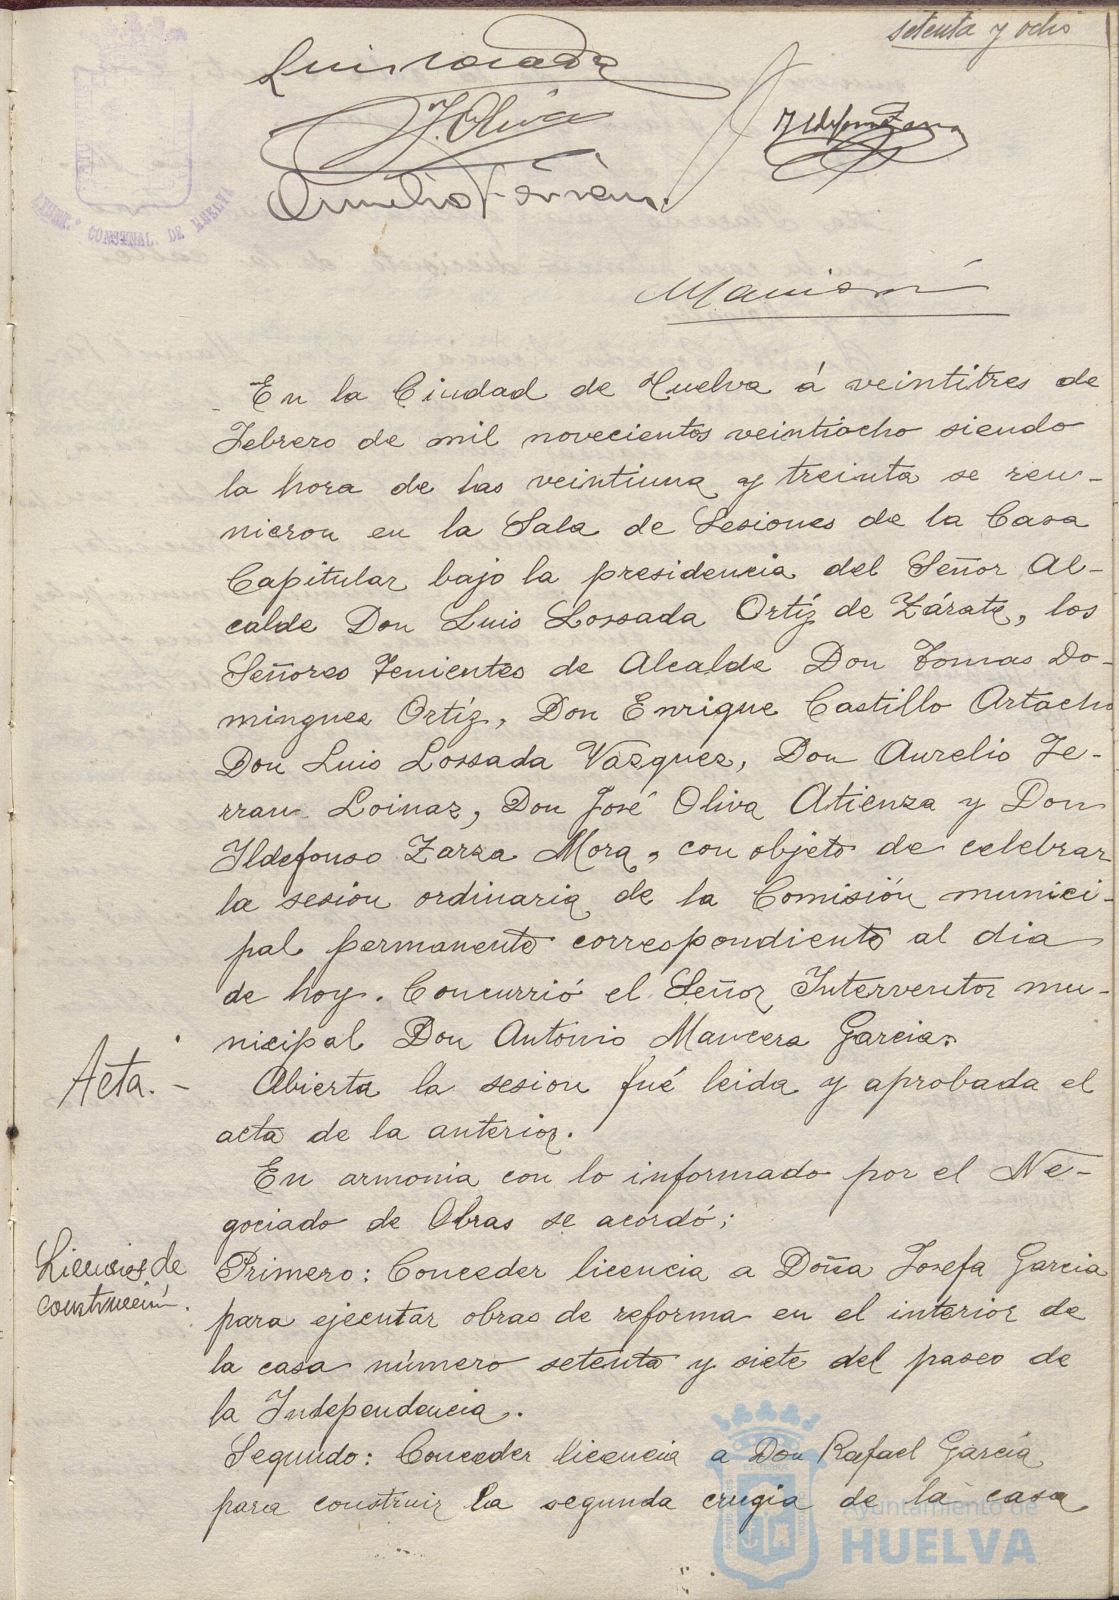 setenta y ocho
Luis Losada
J. Oliva
Ildefonso Zarza
Aurelio Ferran
CONSERJE.. DE HUELVA
En la Ciudad de Huelva á veintitres de
Febrero de mil novecientos veintiocho siendo
la hora de las veintiuna y treinta se reu-
nieron en la Sala de Sesiones de la Casa
Capitular bajo la presidencia del Señor Al-
calde Don Luis Lossada Ortíz de Zárate, los
Señores Tenientes de Alcalde Don Tomas Do-
mingues Ortíz, Don Enrique Castillo Artacho
Don Luis Lossada Vazquez, Don Aurelio Fe-
rran Loinaz, Don José Oliva Atienza y Don
Ildefonso Zarza Mora, con objeto de celebrar
la sesion ordinaria de la Comisión munici-
pal permanente correspondiente al dia
de hoy. Concurrió el Señor Interventor mu-
nicipal Don Antonio Mancera Garcia.
Acta. -
Abierta la sesion fué leida y aprobada el
acta de la anterior.
En armonia con lo informado por el Ne-
gociado de Obras se acordó;
Licencias de
construcción.
Primero: Conceder licencia a Doña Josefa Garcia
para ejecutar obras de reforma en el interior de
la casa número setenta y siete del paseo de
la Independencia.
Segundo: Conceder licencia a Don Rafael García
para construir la segunda crugia de la casa
Ayuntamiento de
HUELVA